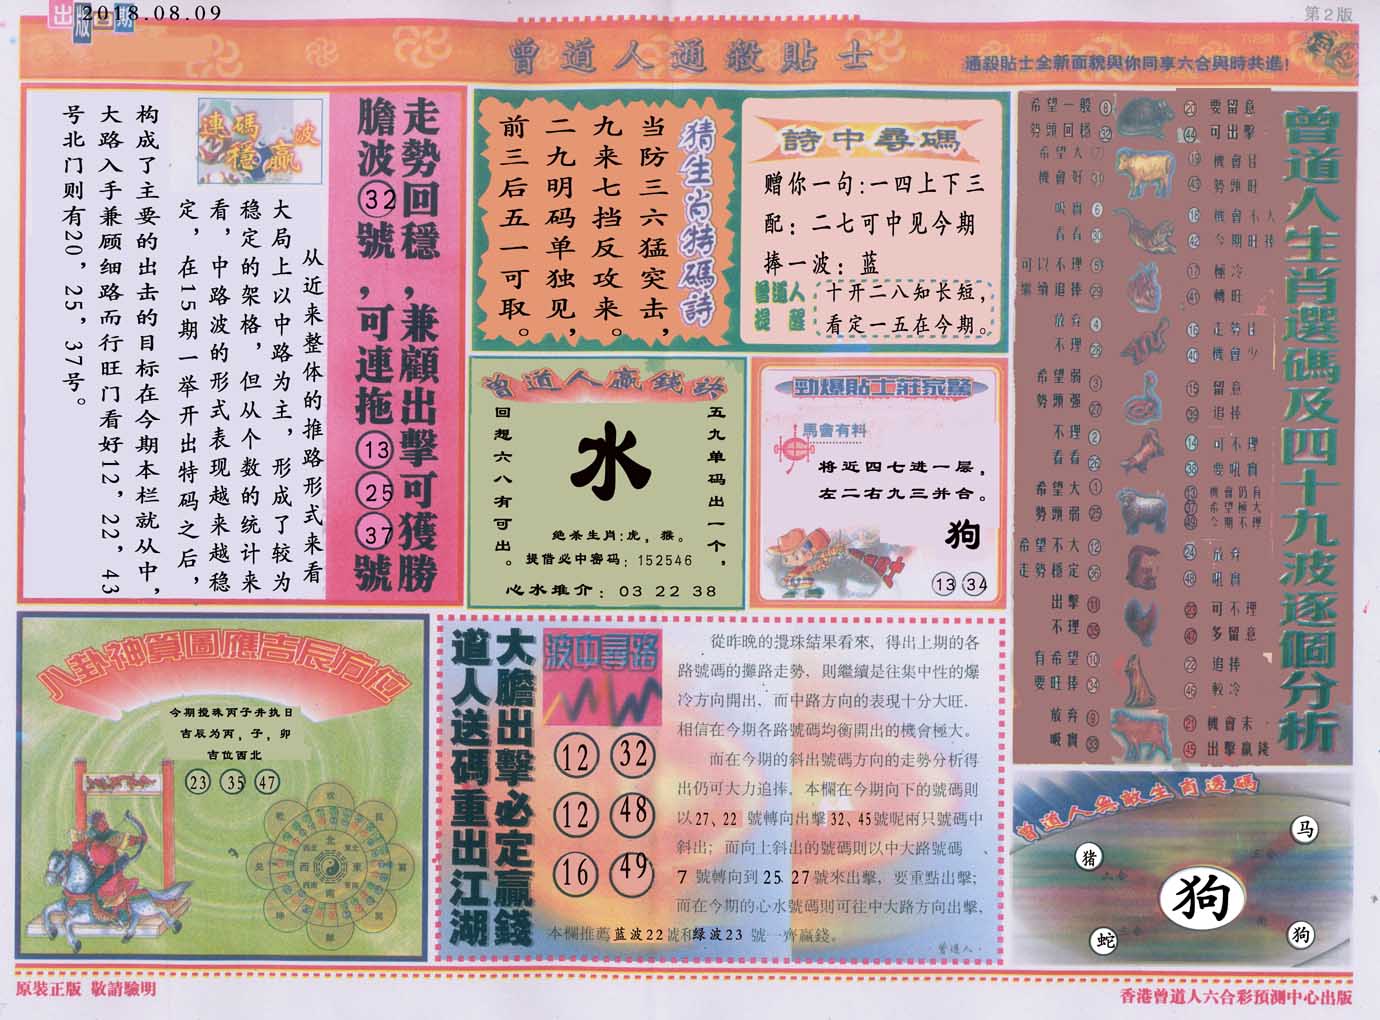 出版日期
2018.08.09
第2版
曾道人通殺貼士
通殺貼士全新面貌與你同享六合與時共進!
走勢回穩,兼顧出擊可獲勝
膽波32號,可連拖13 25 37號
連碼波
穩贏
从近来整体的推路形式来看
大局上以中路为主，形成了较为
稳定的架格，但从个数的统计来
看，中路波的形式表现越来越稳
定，在15期一举开出特码之后，
构成了主要的出击的目标在今期本栏就从中，
大路入手兼顾细路而行旺门看好12，22，43
号北门则有20，25，37号。
猜生肖特碼詩
当防三六猛突击，
九来七挡反攻来。
二九明码单独见，
前三后五一可取。
詩中尋碼
赠你一句:一四上下三
配：二七可中见今期
捧一波：蓝
曾道人
提醒
十开二八知长短，
看定一五在今期。
曾道人贏錢詩
五九单码出一个，
回想六八有可出。
水
绝杀生肖:虎，猴。
提借必中密码：152546
心水推介：03 22 38
勁爆貼士莊家驚
馬會有料
将近四七进一层，
左二右九三并合。
狗
13 34
曾道人生肖選碼及四十九波逐個分析
希望一般 8
勢頭回穩 32
希望大 7
機會好 31
吼實 6
看看 30
可以不理 5
繼續追捧 29
放弃 4
不理 28
希望弱 3
勢頭强 27
不理 2
看看 26
希望大 1
勢頭弱 25
希望不大 12
走勢穩定 36
出擊 11
不理 35
有希望 10
要旺捧 34
放弃 9
吸實 33
20 要留意
44 可出擊
19 機會佳
43 勢頭旺
18 機會不大
42 今期旺捧
17 極冷
41 轉旺
16 走勢佳
40 機會少
15 留意
39 追捧
14 可不理
38 要吼實
13 機會仍有
37 希望極大
49 今期不理
24 放弃
48 吼實
23 可不理
47 多留意
22 追捧
46 較冷
21 機會未
45 出擊贏錢
八卦神算圖應吉辰方位
今期搅珠丙子井执日
吉辰为丙，子，卯
吉位西北
23 35 47
北
西 東
南
大膽出擊必定贏錢
道人送碼重出江湖
波中尋路
12 32
12 48
16 49
從昨晚的攪珠結果看來，得出上期的各
路號碼的攤路走勢，則繼續是往集中性的爆
冷方向開出，而中路方向的表現十分大旺．
相信在今期各路號碼均衡開出的機會極大。
而在今期的斜出號碼方向的走勢分析得
出仍可大力追捧，本欄在今期向下的號碼則
以27、22 號轉向出擊32、45號呢兩只號碼中
斜出；而向上斜出的號碼則以中大路號碼、
7 號轉向到25 27號來出擊，要重點出擊；
而在今期的心水號碼則可往中大路方向出擊，
本欄推薦蓝波22號和绿波23 號一齊贏錢。
曾道人．
曾道人無敵生肖透碼
马
猪
狗
蛇
狗
原裝正版 敬請驗明
香港曾道人六合彩預測中心出版